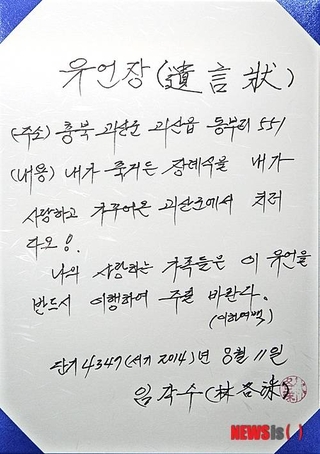 유언장(遺言狀)
(주소) 충북 괴산군 괴산읍 동부리 551
(내용) 내가 죽거든 장례식을 내가
사랑하고 가꾸어온 괴산군에서 치러
다오!
나의 사랑하는 가족들은 이 유언을
반드시 이행하여 주길 바란다.
(이하여백)
단기 4347(서기 2014)년 8월 11일
임각수(林各洙)
NEWSis( )